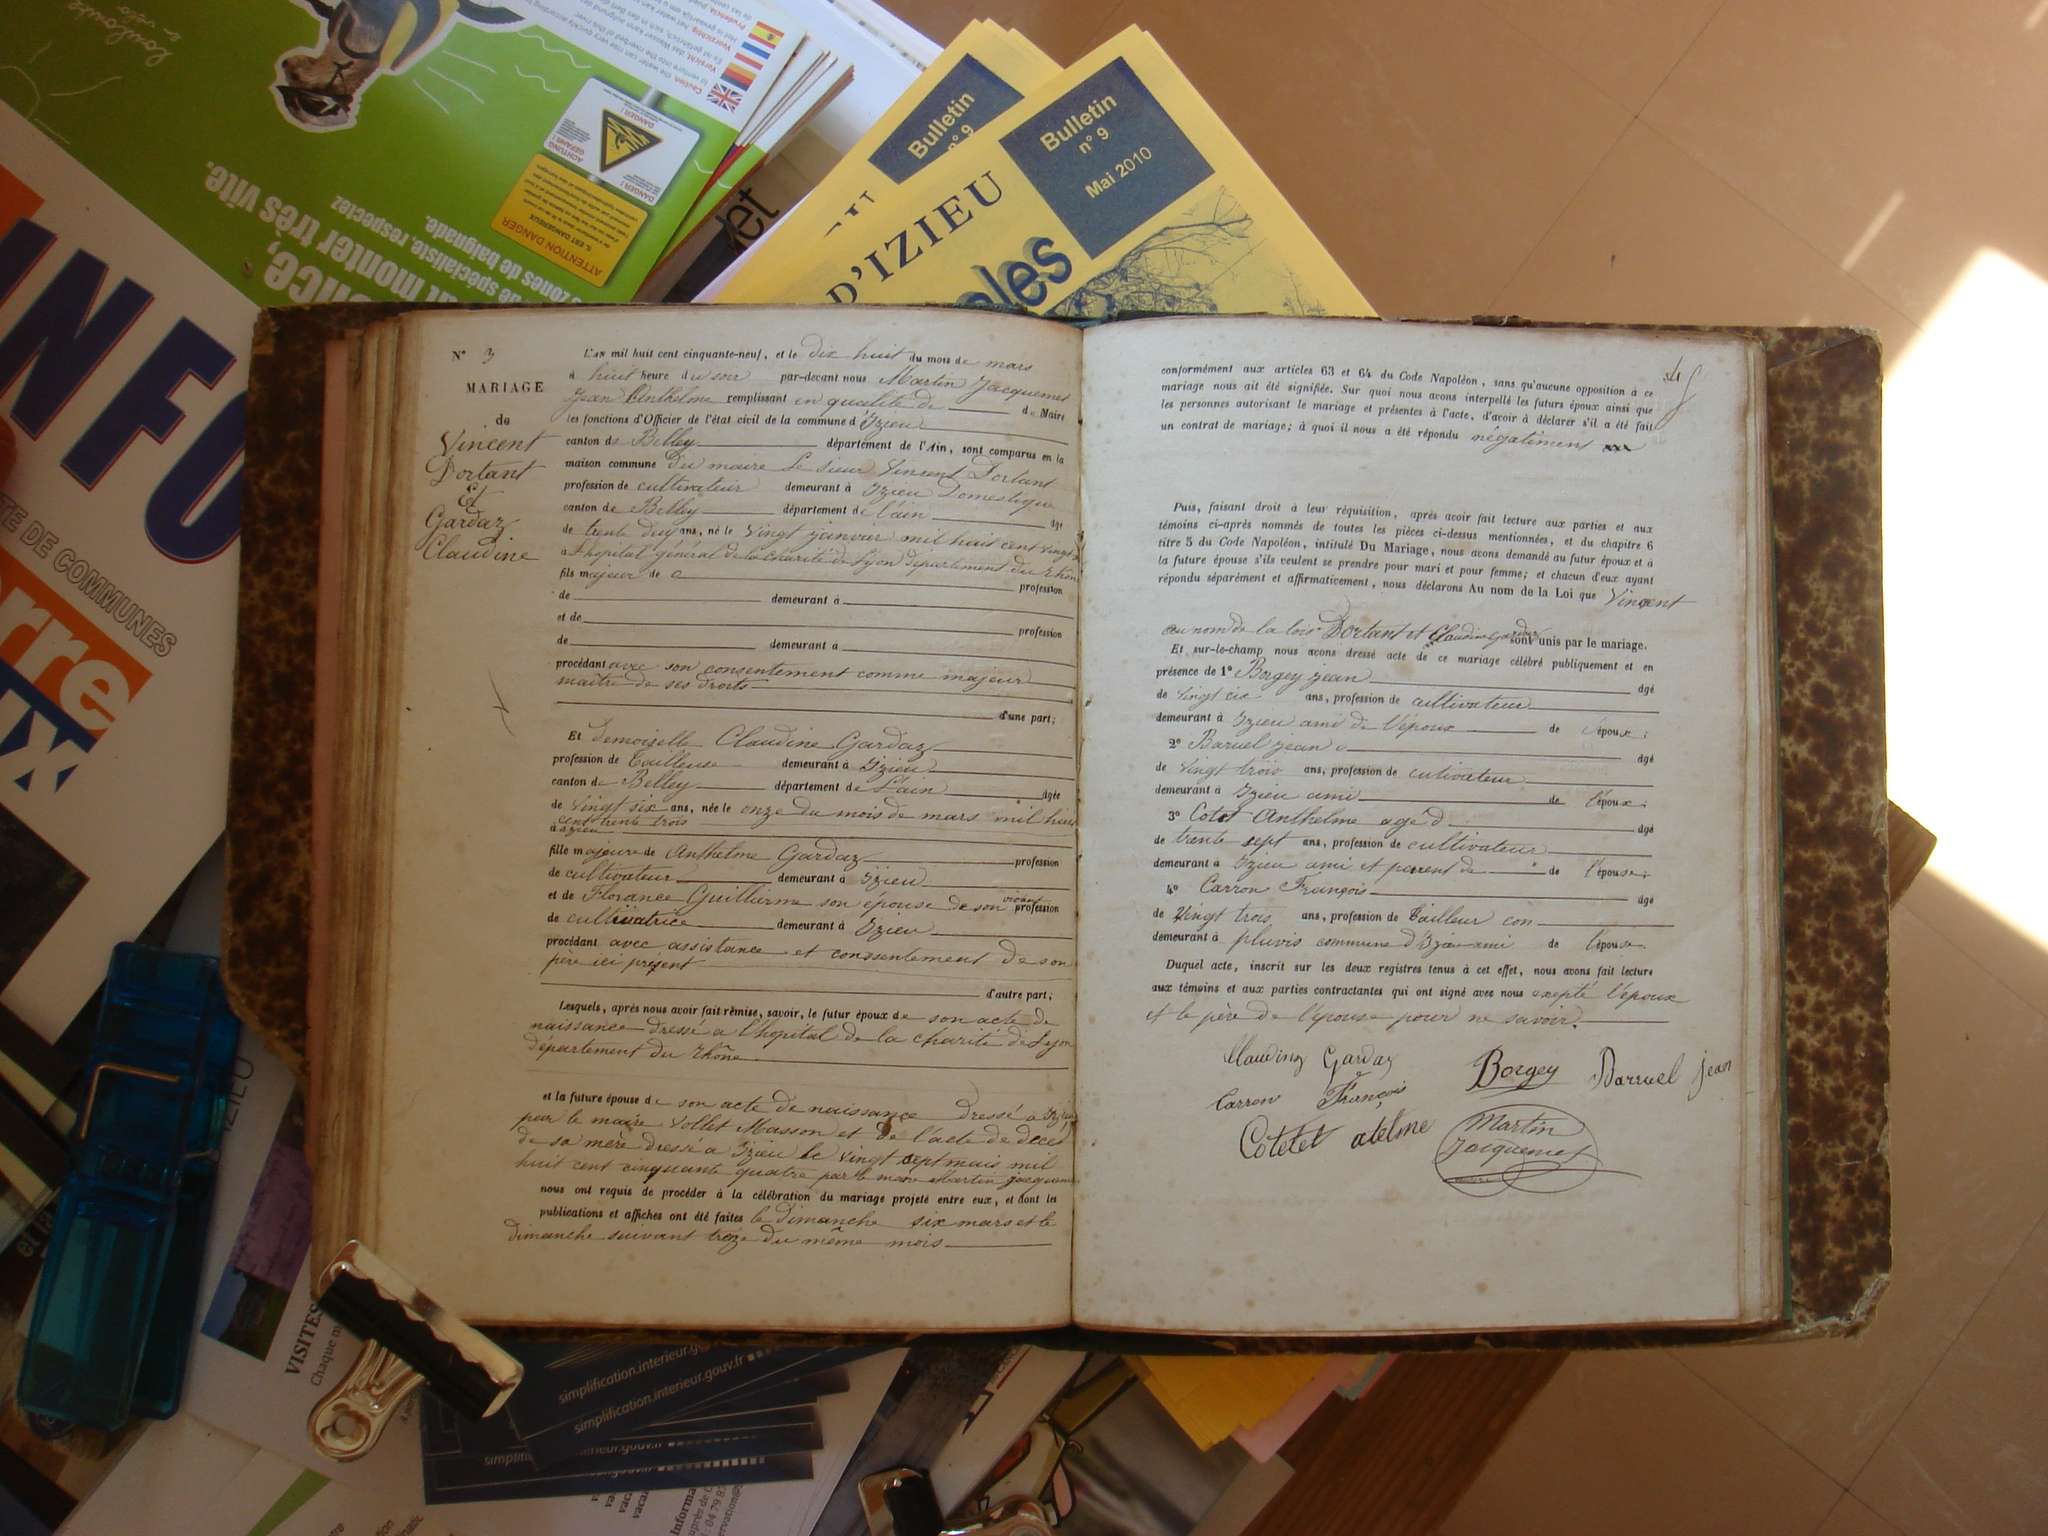 N° 3
MARIAGE
de
Vincent
Dortant
Et
Gardaz
Claudine
L'an mil huit cent cinquante-neuf, et le dix huit du mois de mars
à huit heure du soir par-devant nous Martin Jacquemet
Jean Anthelme remplissant en qualité de de Maire
les fonctions d'Officier de l'état civil de la commune d'Izieu
canton de Belley département de l'Ain, sont comparus en la
maison commune du maire Le sieur Vincent Dortant
profession de cultivateur demeurant à Izieu Domestique
canton de Belley département de l'ain âgé
de trente deux ans, né le vingt janvier mil huit cent vingt
à l'hopital général de la charité de Lyon département du rhône
fils majeur de profession
de demeurant à
et de profession
de demeurant à
procédant avec son consentement comme majeur
maître de ses droits
d'une part;
Et Demoiselle Claudine Gardaz
profession de Tailleuse demeurant à Izieu
canton de Belley département de L'ain âgée
de vingt six ans, née le onze du mois de mars mil huit
cent trente trois
à izieu
fille majeure de Anthelme Gardaz profession
de cultivateur demeurant à Izieu
et de Florance Guillerme son épouse de son vivant profession
de cultivatrice demeurant à Izieu
procédant avec assistance et consentement de son
père ici présent
d'autre part;
Lesquels, après nous avoir fait remise, savoir, le futur époux de son acte de
naissance dressé a l'hopital de la charité de Lyon
département du rhône
et la future épouse de son acte de naissance dressé a Izieu
par le maire Vollet Masson et de l'acte de deces
de sa mère dressé a Izieu le vingt sept mais mil
huit cent cinquante quatre par le mare Martin jacquemet
nous ont requis de procéder à la célébration du mariage projeté entre eux, et dont les
publications et affiches ont été faites le dimanche six mars et le
dimanche suivant treze du même mois
conformément aux articles 63 et 64 du Code Napoléon, sans qu'aucune opposition à ce
mariage nous ait été signifiée. Sur quoi nous avons interpellé les futurs époux ainsi que
les personnes autorisant le mariage et présentes à l'acte, d'avoir à déclarer s'il a été fait
un contrat de mariage; à quoi il nous a été répondu négatiment
Puis, faisant droit à leur réquisition, après avoir fait lecture aux parties et aux
témoins ci-après nommés de toutes les pièces ci-dessus mentionnées, et du chapitre 6
titre 5 du Code Napoléon, intitulé Du Mariage, nous avons demandé au futur époux et à
la future épouse s'ils veulent se prendre pour mari et pour femme; et chacun d'eux ayant
répondu séparément et affirmativement, nous déclarons Au nom de la Loi que Vincent
au nom de la lois Dortant et Claudine Gardaz sont unis par le mariage.
Et sur-le-champ nous avons dressé acte de ce mariage célébré publiquement et en
présence de 1° Borgey jean âgé
de vingt six ans, profession de cultivateur
demeurant à Izieu ami de l'époux de l'époux;
2° Baruel jean âgé
de vingt trois ans, profession de cutivateur
demeurant à Izieu ami de l'époux;
3° Cotet Anthelme age d âgé
de trente sept ans, profession de cultivateur
demeurant à Izieu ami et parent de de l'épouse;
4° Carron François âgé
de vingt trois ans, profession de Tailleur con
demeurant à pluvis commune d'Izieu ami de l'épouse
Duquel acte, inscrit sur les deux registres tenus à cet effet, nous avons fait lecture
aux témoins et aux parties contractantes qui ont signé avec nous exepté l'époux
et le père de l'épouse pour ne savoir.
Claudine Gardaz Borgey Barruel jean
Carron François
Cotetet atelme Martin
Jacquemet
Bulletin
n° 9
Bulletin
n° 9
Mai 2010
D'IZIEU
INFO
TE DE COMMUNES
erre
monter très vite.
spécialiste, respectez
zones de baignade.
ATTENTION DANGER
DANGER !
ACHTUNG
GEFAHR !
Caution
Vorsicht
IZIEU
VISITES
simplification.interieur.gouv.fr
simplification.interieur.gouv.fr